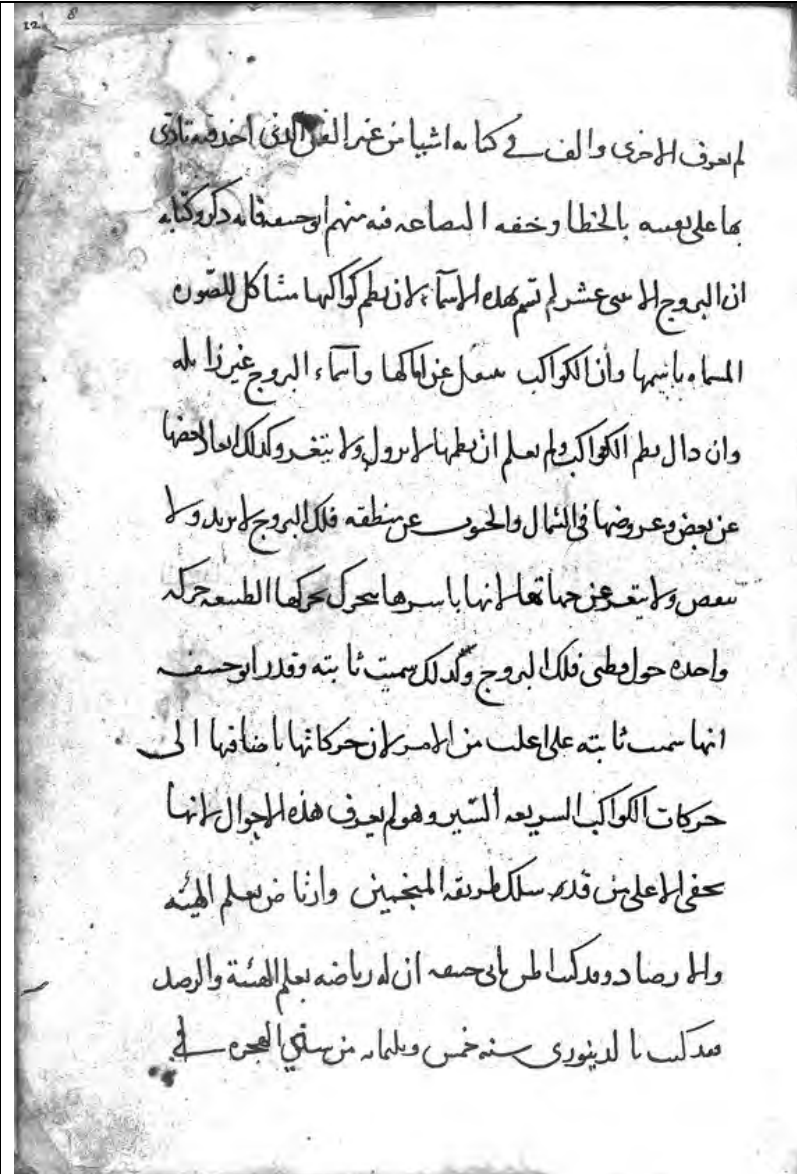 12 8
لم يعرف الاخرى والف في كتابه اشيا من غير الفن الذي اخذ فيه نادى
بها على نفسه بالخطا وخفه البضاعه فيه منهم ابو حنيفه فانه ذكر في كتابه
ان البروج الاثنى عشر لم تسم بهذه الاسماء لان نظم كواكبها مشاكل للصوره
المسماه باسمها وأن الكواكب تنتقل عن اماكنها وآسماء البروج غير زايله
وان زال نظم الكواكب ولم يعلم ان نظمها لا يزول ولا يتغير وكذلك ابعاد بعضها
عن بعض وعروضها في الشمال والجنوب عن منطقه فلك البروج لا يزيد ولا
ينقص ولا يتغير عن جهاتها لانها باسرها تتحرك بحركتها الطبيعيه حركه
واحده حول قطبي فلك البروج ولذلك سميت ثابته وقدر ابو حنيفه
انها سميت ثابته على اغلب من الامر لان حركاتها باضافتها الى
حركات الكواكب السريعه السير وهو لم يعرف هذه الاحوال لانها
تخفى الا على من قد سلك طريقه المنجمين وارتاض بعلم الهيئه
والارصاد وقد كنت اظن بابي حنيفه ان له رياضه بعلم الهيئة والرصد
فقد كنت بالدينورى سنه خمس وثلثمايه من سني الهجره في